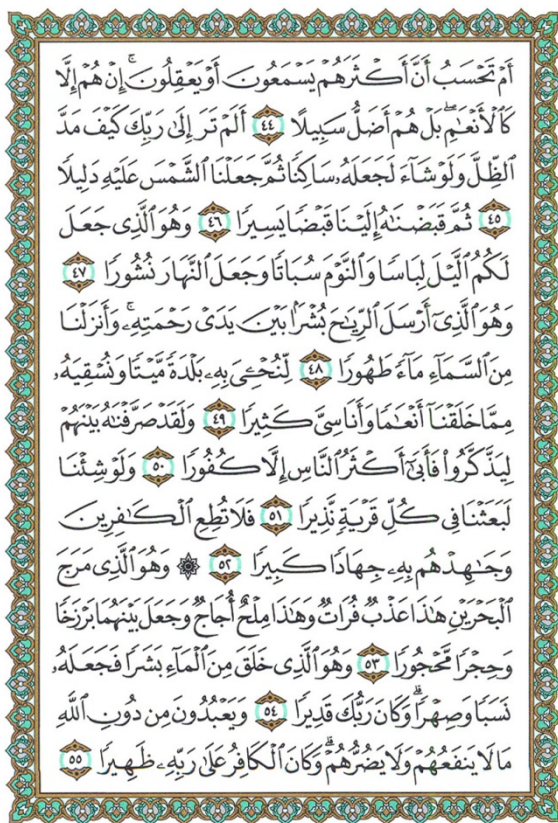 أَمْ تَحْسَبُ أَنَّ أَكْثَرَهُمْ يَسْمَعُونَ أَوْ يَعْقِلُونَ ۚ إِنْ هُمْ إِلَّا
كَالْأَنْعَٰمِ ۖ بَلْ هُمْ أَضَلُّ سَبِيلًا ٤٤ أَلَمْ تَرَ إِلَىٰ رَبِّكَ كَيْفَ مَدَّ
الظِّلَّ وَلَوْ شَآءَ لَجَعَلَهُۥ سَاكِنًا ثُمَّ جَعَلْنَا الشَّمْسَ عَلَيْهِ دَلِيلًا
٤٥ ثُمَّ قَبَضْنَٰهُ إِلَيْنَا قَبْضًا يَسِيرًا ٤٦ وَهُوَ الَّذِى جَعَلَ
لَكُمُ الَّيْلَ لِبَاسًا وَالنَّوْمَ سُبَاتًا وَجَعَلَ النَّهَارَ نُشُورًا ٤٧
وَهُوَ الَّذِىٓ أَرْسَلَ الرِّيَٰحَ بُشْرًۢا بَيْنَ يَدَىْ رَحْمَتِهِۦ ۚ وَأَنزَلْنَا
مِنَ السَّمَآءِ مَآءً طَهُورًا ٤٨ لِّنُحْۦِىَ بِهِۦ بَلْدَةً مَّيْتًا وَنُسْقِيَهُۥ
مِمَّا خَلَقْنَآ أَنْعَٰمًا وَأَنَاسِىَّ كَثِيرًا ٤٩ وَلَقَدْ صَرَّفْنَٰهُ بَيْنَهُمْ
لِيَذَّكَّرُوا۟ فَأَبَىٰٓ أَكْثَرُ النَّاسِ إِلَّا كُفُورًا ٥٠ وَلَوْ شِئْنَا
لَبَعَثْنَا فِى كُلِّ قَرْيَةٍ نَّذِيرًا ٥١ فَلَا تُطِعِ الْكَٰفِرِينَ
وَجَٰهِدْهُم بِهِۦ جِهَادًا كَبِيرًا ٥٢ ۞ وَهُوَ الَّذِى مَرَجَ
الْبَحْرَيْنِ هَٰذَا عَذْبٌ فُرَاتٌ وَهَٰذَا مِلْحٌ أُجَاجٌ وَجَعَلَ بَيْنَهُمَا بَرْزَخًا
وَحِجْرًا مَّحْجُورًا ٥٣ وَهُوَ الَّذِى خَلَقَ مِنَ الْمَآءِ بَشَرًا فَجَعَلَهُۥ
نَسَبًا وَصِهْرًا ۗ وَكَانَ رَبُّكَ قَدِيرًا ٥٤ وَيَعْبُدُونَ مِن دُونِ اللَّهِ
مَا لَا يَنفَعُهُمْ وَلَا يَضُرُّهُمْ ۗ وَكَانَ الْكَافِرُ عَلَىٰ رَبِّهِۦ ظَهِيرًا ٥٥